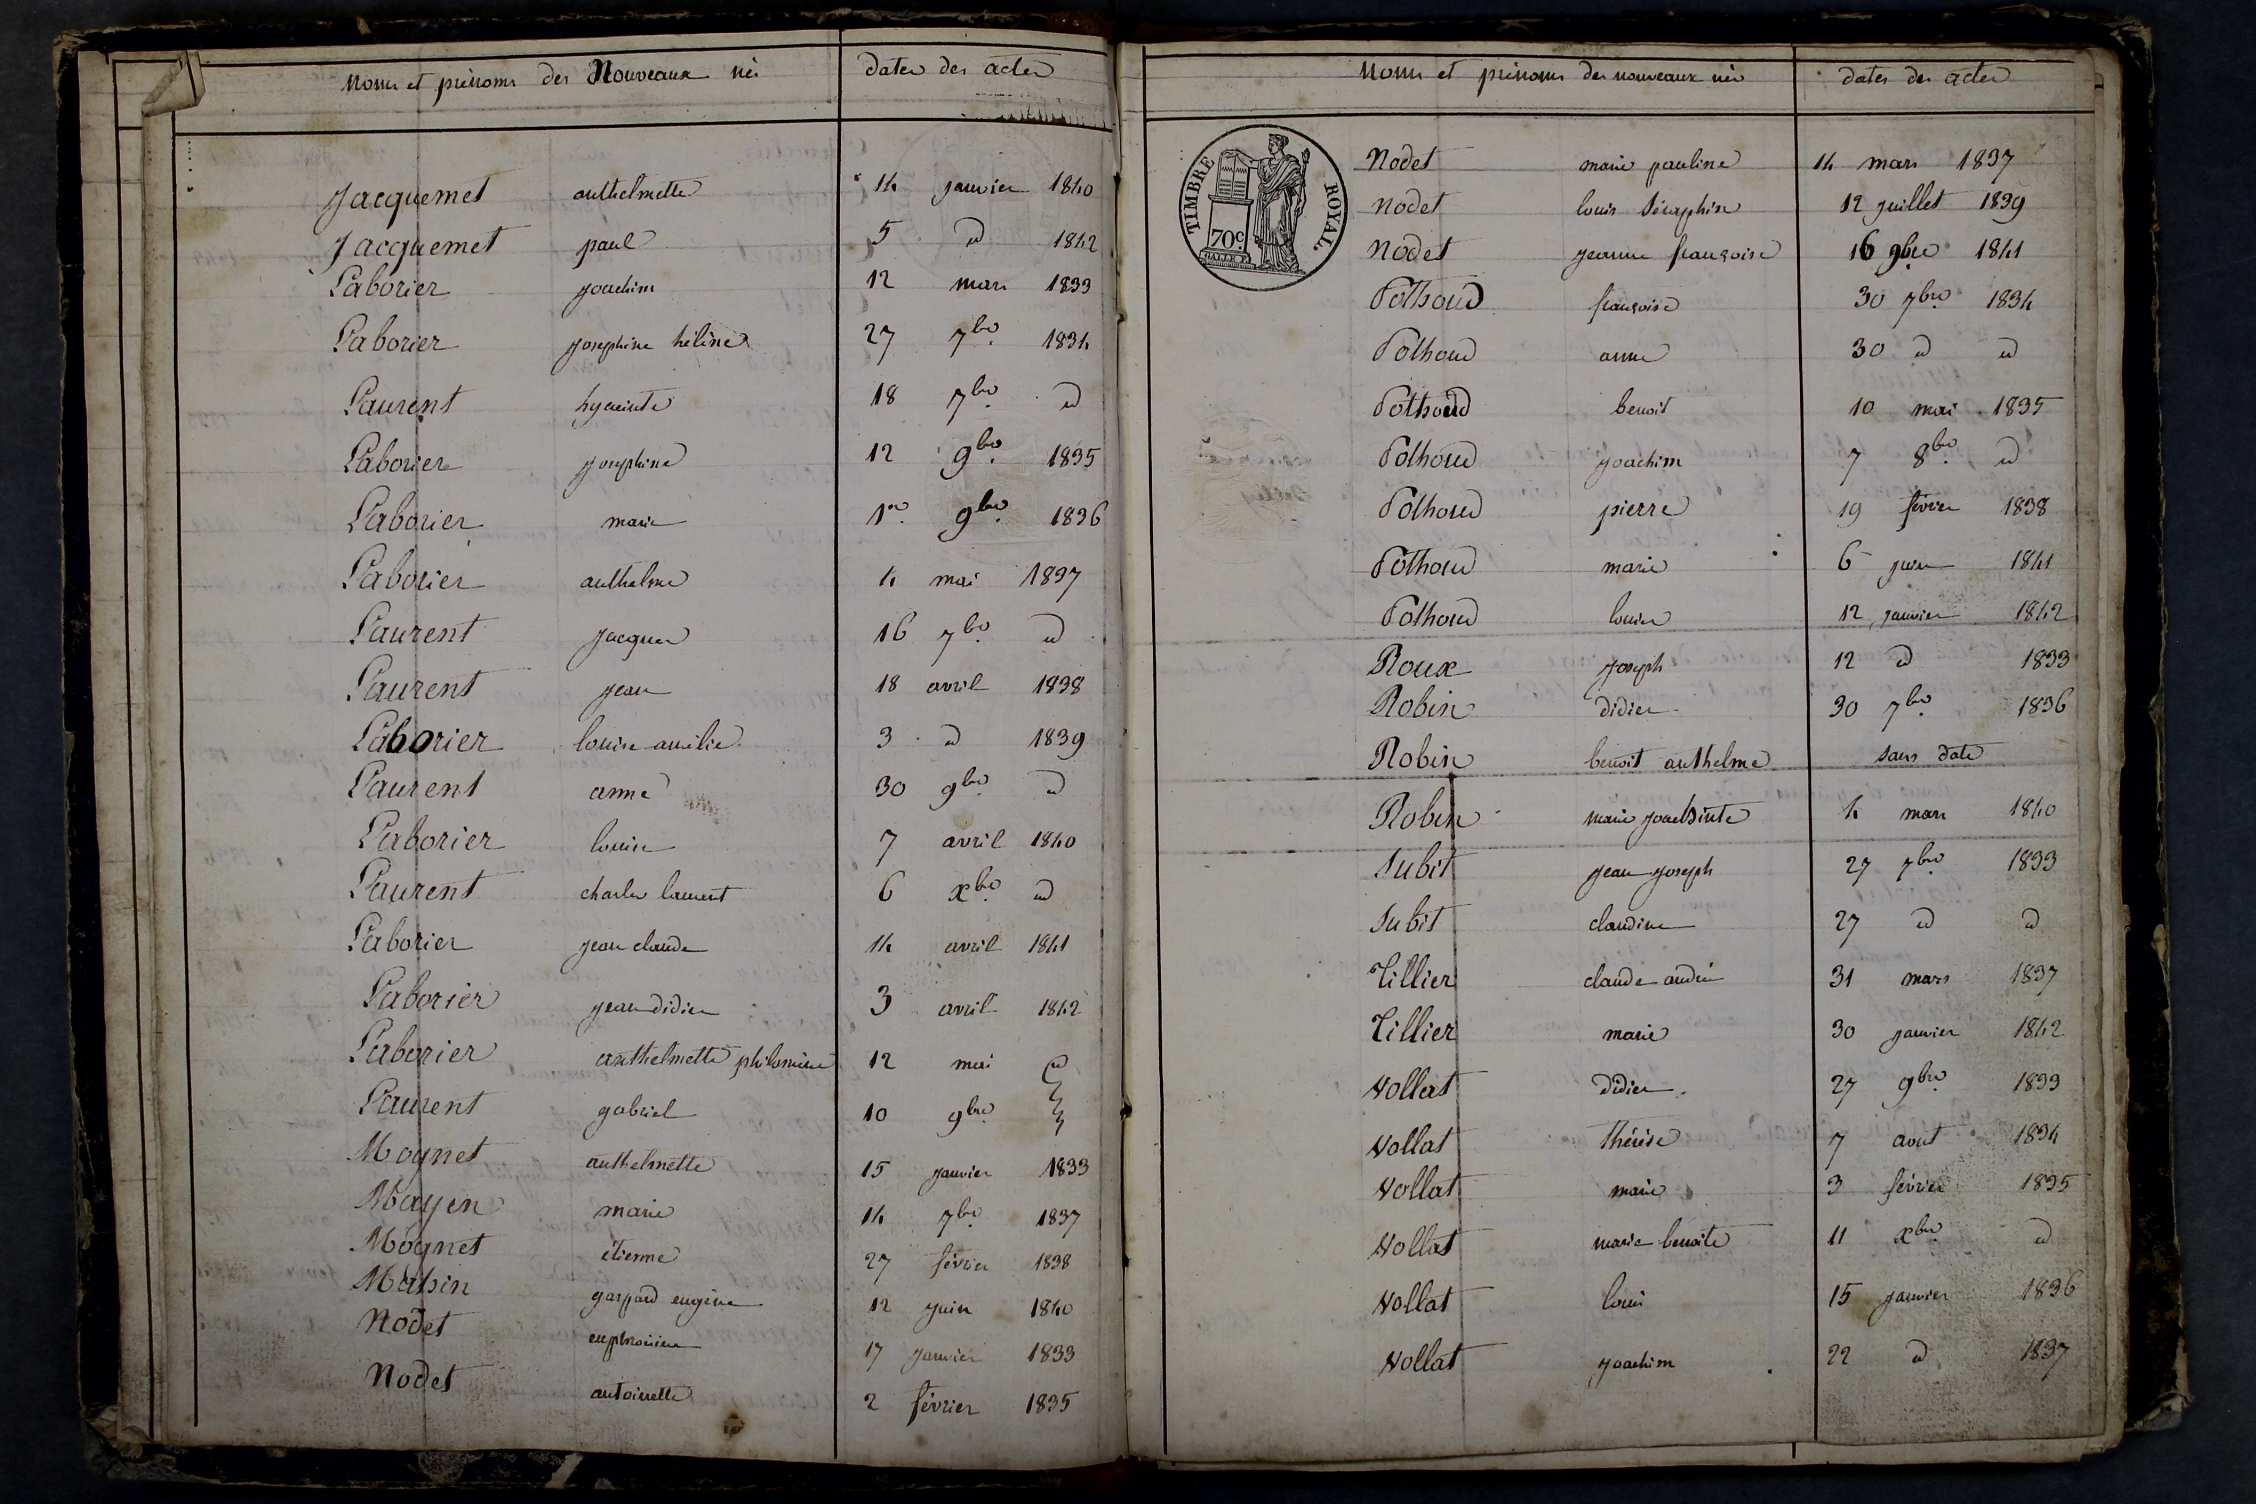 Noms et prénoms des Nouveaux nés dates des actes
Jacquemet anthelmette 14 janvier 1840
Jacquemet paul 5 id 1842
Laborier joachim 12 mars 1833
Laborier josephine hélène 27 7bre 1834
Laurent hyacinte 18 7bre id
Laborier josephine 12 9bre 1835
Laborier marie 1er 9bre 1836
Laborier anthelme 4 mai 1837
Laurent jacques 16 7bre id
Laurent jean 18 avril 1838
Laborier louise amélie 3 id 1839
Laurent anne 30 9bre id
Laborier louise 7 avril 1840
Laurent charles laurent 6 xbre id
Laborier jean claude 14 avril 1841
Laborier jean didier 3 avril 1842
Laborier anthelmette philomène 12 mai id
Laurent gabriel 10 9bre
Mognet anthelmette 15 janvier 1833
Moyen marie 14 7bre 1837
Mognet étienne 27 février 1838
Mabin gaspard eugène 12 juin 1840
Nodet euphrosine 17 janvier 1833
Nodet antoinette 2 février 1835
Noms et prénoms des nouveaux nés dates des actes
TIMBRE ROYAL
70c.
Nodet marie pauline 14 mars 1837
Nodet louis Séraphin 12 juillet 1839
Nodet jeanne françoise 16 9bre 1841
Pothoud françoise 30 7bre 1834
Pothoud anne 30 id id
Pothoud benoit 10 mai 1835
Pothoud joachim 7 8bre id
Pothoud pierre 19 février 1838
Pothoud marie 6 juin 1841
Pothoud louise 12 janvier 1842
Roux joseph 12 id 1833
Robin didier 30 7bre 1836
Robin benoit anthelme sans date
Robin marie 4 mars 1840
Subit jean joseph 27 7bre 1833
Subit claudine 27 id id
Tillier claude andré 31 mars 1837
Tillier marie 30 janvier 1842
Vollat didier 27 9bre 1833
Vollat thérèse 7 aout 1834
Vollat marie 3 février 1835
Vollat marie benoite 11 xbre id
Vollat louis 15 janvier 1836
Vollat joachim 22 id 1837